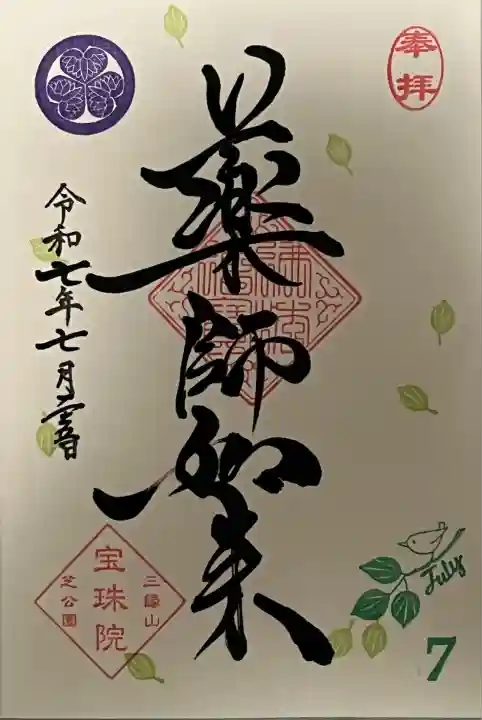 奉拝
薬師如来
令和七年七月吉日
三縁山
宝珠院
芝公園
July
7